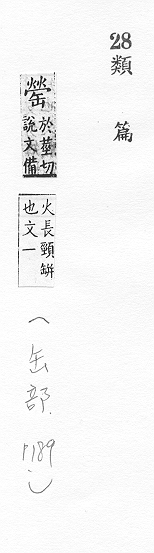 28類篇
罃於莖切說文備
火長頸缾也文一
(缶部. P189)